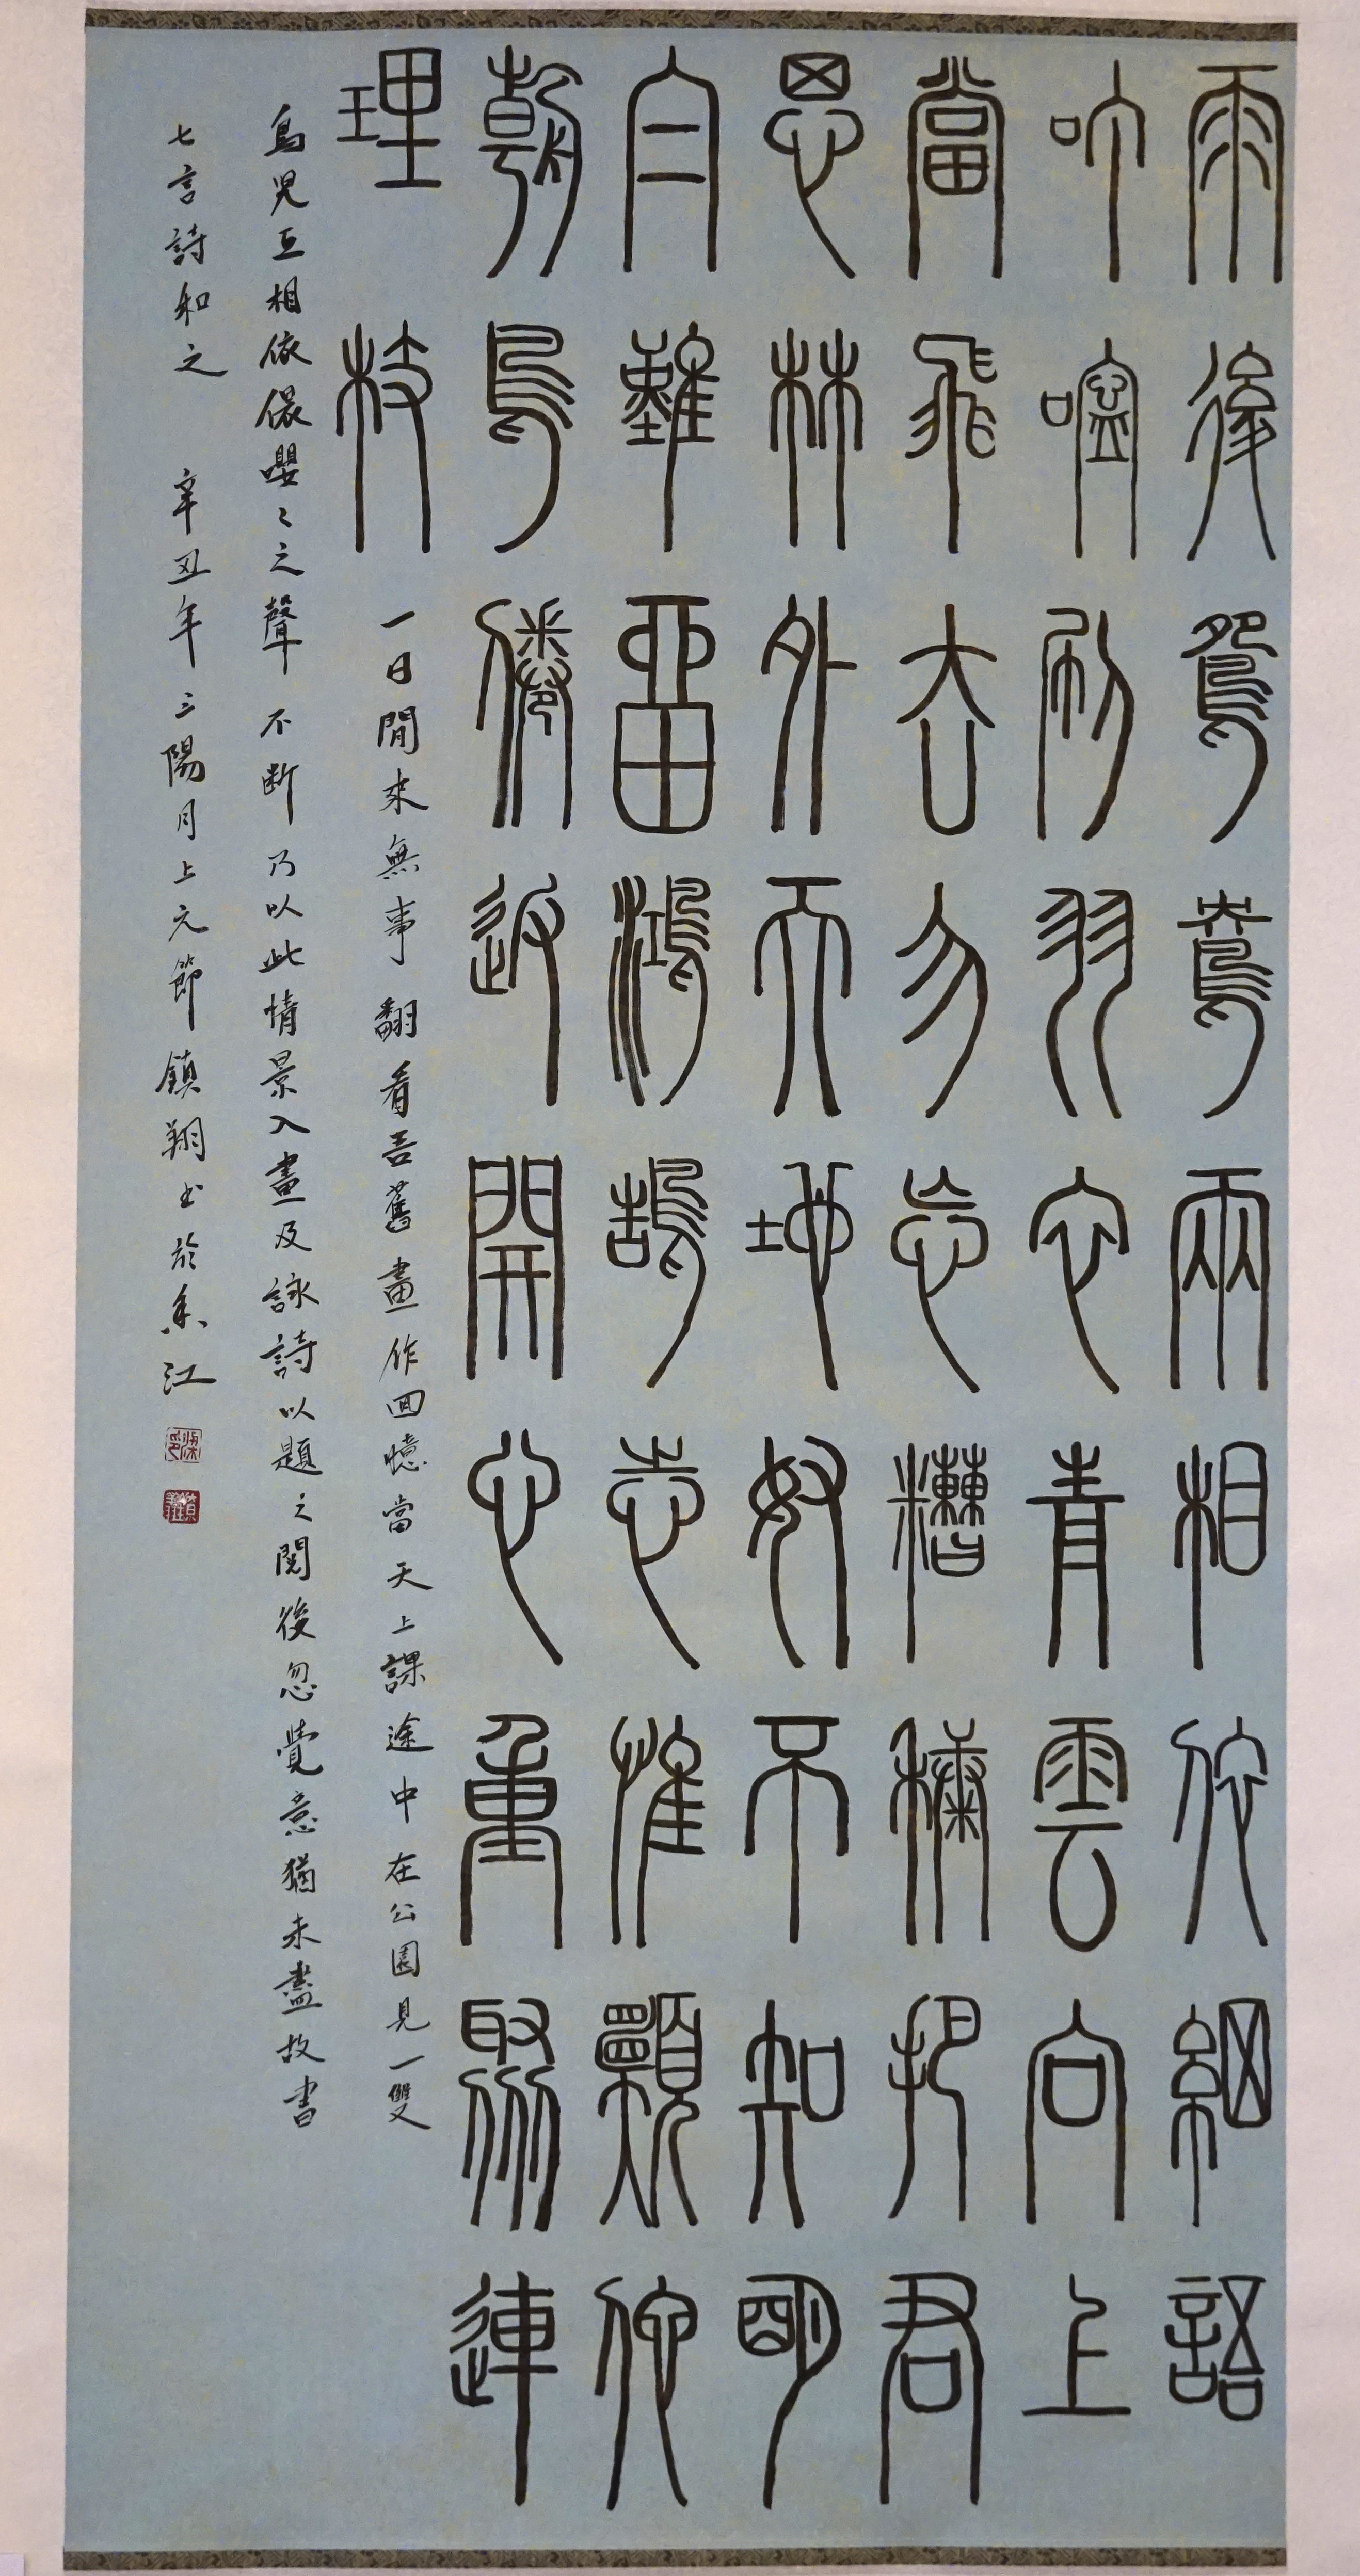 雨後鴛鴦兩相依細語
叮嚀刷羽衣青雲向上
當飛去勿忘糟糠把君
思林外天地奴不知明
白難留鴻鵠志惟願他
朝鳥倦返開心重聚連
理枝
一日閒來無事翻看吾舊畫作回憶當天上課途中在公園見一雙
鳥兒互相依偎嚶〻之聲不斷乃以此情景入畫及詠詩以題之閱後忽覺意猶未盡故書
七言詩和之 辛丑年三陽月上元節鎮翔书於香江